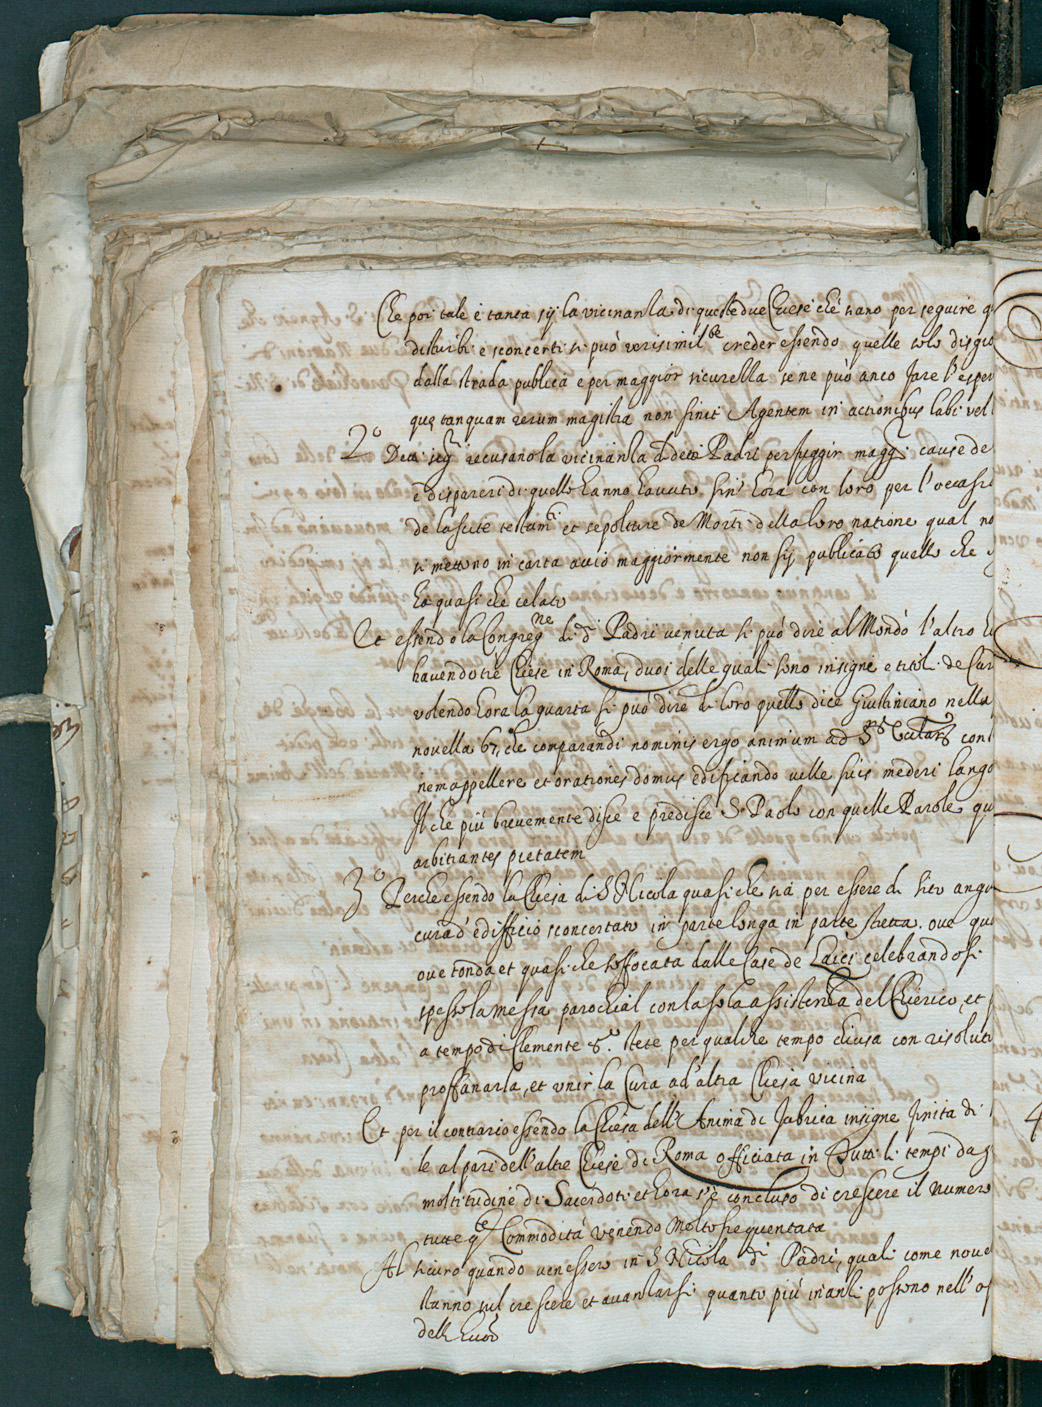 Che poi tale è tanta sij la vicinanza di queste due Chiese che siano per seguire
disturbi e sconcerti si può verisimil.te creder essendo quelle solo disgiu
dalla strada publica e per maggior sicurezza se ne può anco fare l'esper
que tanquam rerum magistra non sinit Agentem in actionibus labi vel
2.o Detti recusano la vicinanza d detti Padri per fuggir magg.ri cause de
e dispareri di quello hanno havuto sin' hora con loro per l'occasi
de lascite testam.ti et sepolture de Morti della loro natione qual no
si mettono in carta acciò maggiormente non sij publicato quello che
ha quasi che celato
Et essendo la Congreg.ne di d.i Padri venuta si può dire al Mondo l'altro
havendo tre Chiese in Roma, duoi delle quali sono insigne e titoli de Car
volendo hora la quarta si può dire di loro quello dice Giustiniano nella
novella 67, che comparandi nominis ergo animum ad con
nem appellere et orationes domus edificando velle suis mederi lango
Il che più brevemente disse e predisse S. Paolo con quelle Parole qu
arbitrantes pietatem
3.o Perche essendo la Chiesa di S. Nicola quasi che sia per essere di sito angu
cura d'edifficio sconcertato in parte longa in parte stretta. ove qu
ove tonda et quasi che soffocata dalle Case de Laici celebrandosi
spesso la messa parochial con la sola assistenza del Chierico, et
a tempo di Clemente 8.o stete per qualche tempo chiusa con risoluti
proffanarla, et unir la Cura ad altra Chiesa vicina
Et per il contrario essendo la Chiesa dell'Anima di fabrica insigne finita di
le al pari dell'altre Chiese di Roma officiata in Tutti li tempi da
moltitudine di Sacerdoti et hora s'è concluso di crescere il numero
tutte q.te Commodità venendo Molto frequentata
Al sicuro quando venessero in S. Nicola d.i Padri, quali come nove
stanno sul crescere et avantarsi quanto più inanzi possono nell'
delle